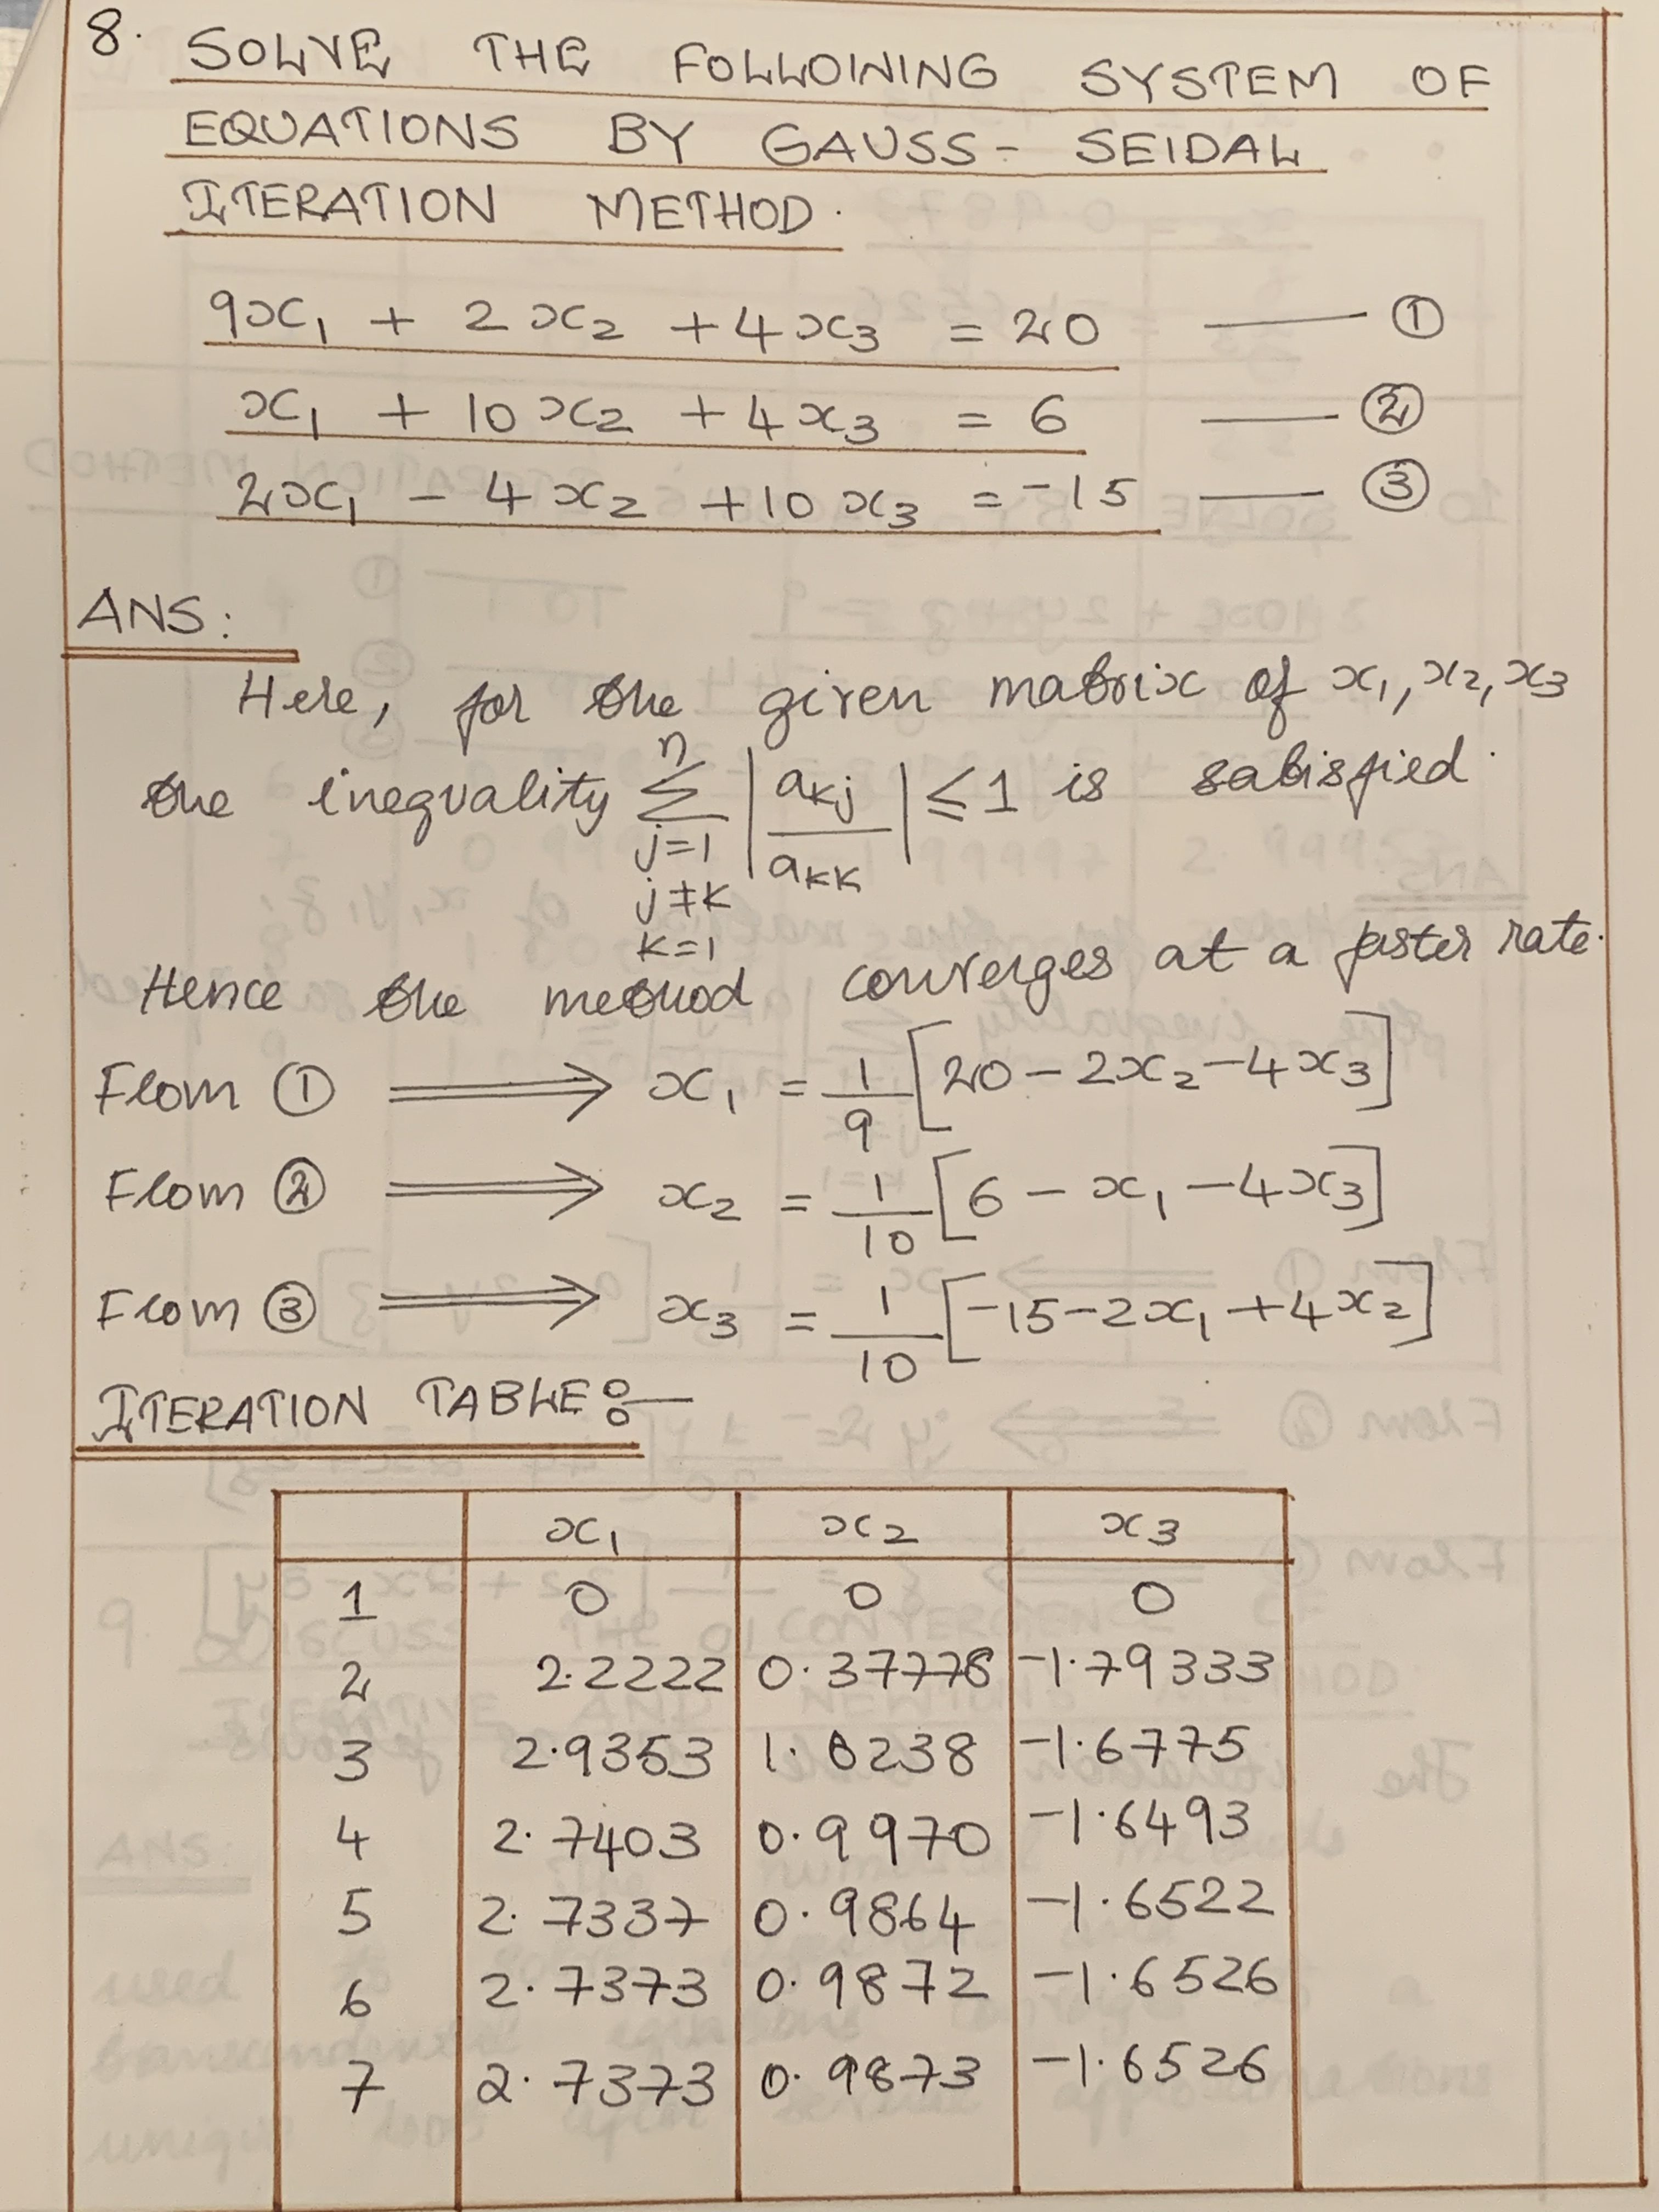 8. SOLVE THE FOLLOWING SYSTEM OF
EQUATIONS BY GAUSS- SEIDAL
ITERATION METHOD.
9x₁ + 2x₂ + 4x₃ = 20 —— ①
x₁ + 10x₂ + 4x₃ = 6 —— ②
2x₁ - 4x₂ + 10x₃ = -15 —— ③
ANS:
Here, for the given matrix of x₁, x₂, x₃
the inequality ∑ⁿ_{j=1, j≠k, k=1} |a_{kj}/a_{kk}| ≤ 1 is satisfied.
Hence the method converges at a faster rate.
From ① ⟹ x₁ = 1/9 [20 - 2x₂ - 4x₃]
From ② ⟹ x₂ = 1/10 [6 - x₁ - 4x₃]
From ③ ⟹ x₃ = 1/10 [-15 - 2x₁ + 4x₂]
ITERATION TABLE:—
x₁ x₂ x₃
1 0 0 0
2 2.2222 0.37778 -1.79333
3 2.9353 1.0238 -1.6775
4 2.7403 0.9970 -1.6493
5 2.7337 0.9864 -1.6522
6 2.7373 0.9872 -1.6526
7 2.7373 0.9873 -1.6526